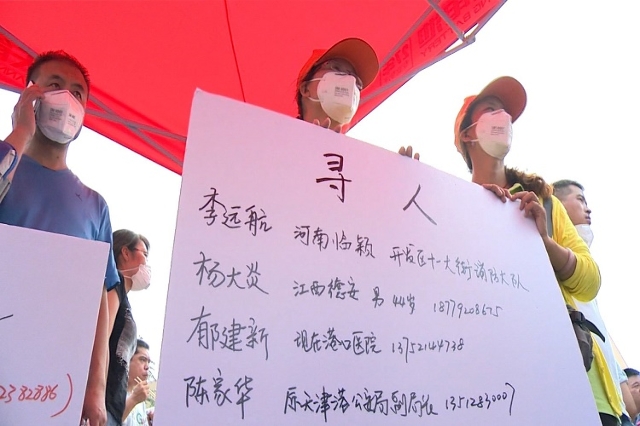 寻人
李远航 河南临颍 开发区十一大街消防大队
杨大炎 江西德安 男 44岁 18779208675
郁建新 现在港口医院 13752144738
陈家华 原天津港公安局副局长 13512830007
2382886)